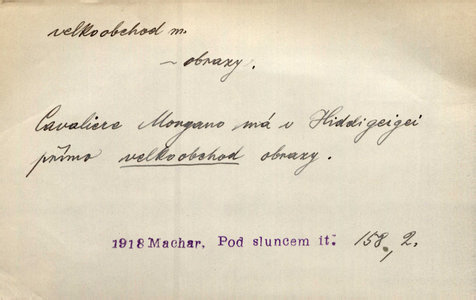 velkoobchod m.
~ obrazy.
Cavaliere Morgano má v Hiddigeigei
přímo velkoobchod obrazy.
1918 Machar, Pod sluncem it. 158, 2.